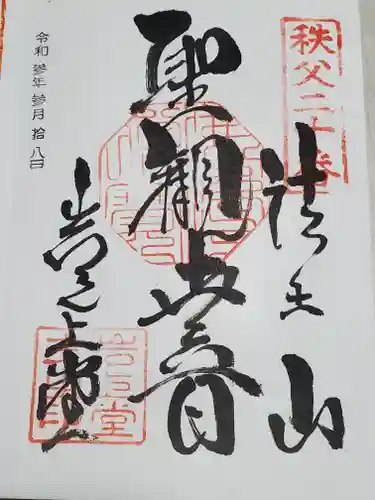 秩父二十番
法王山
聖観世音
岩之上堂
令和 参年 参月 拾八日